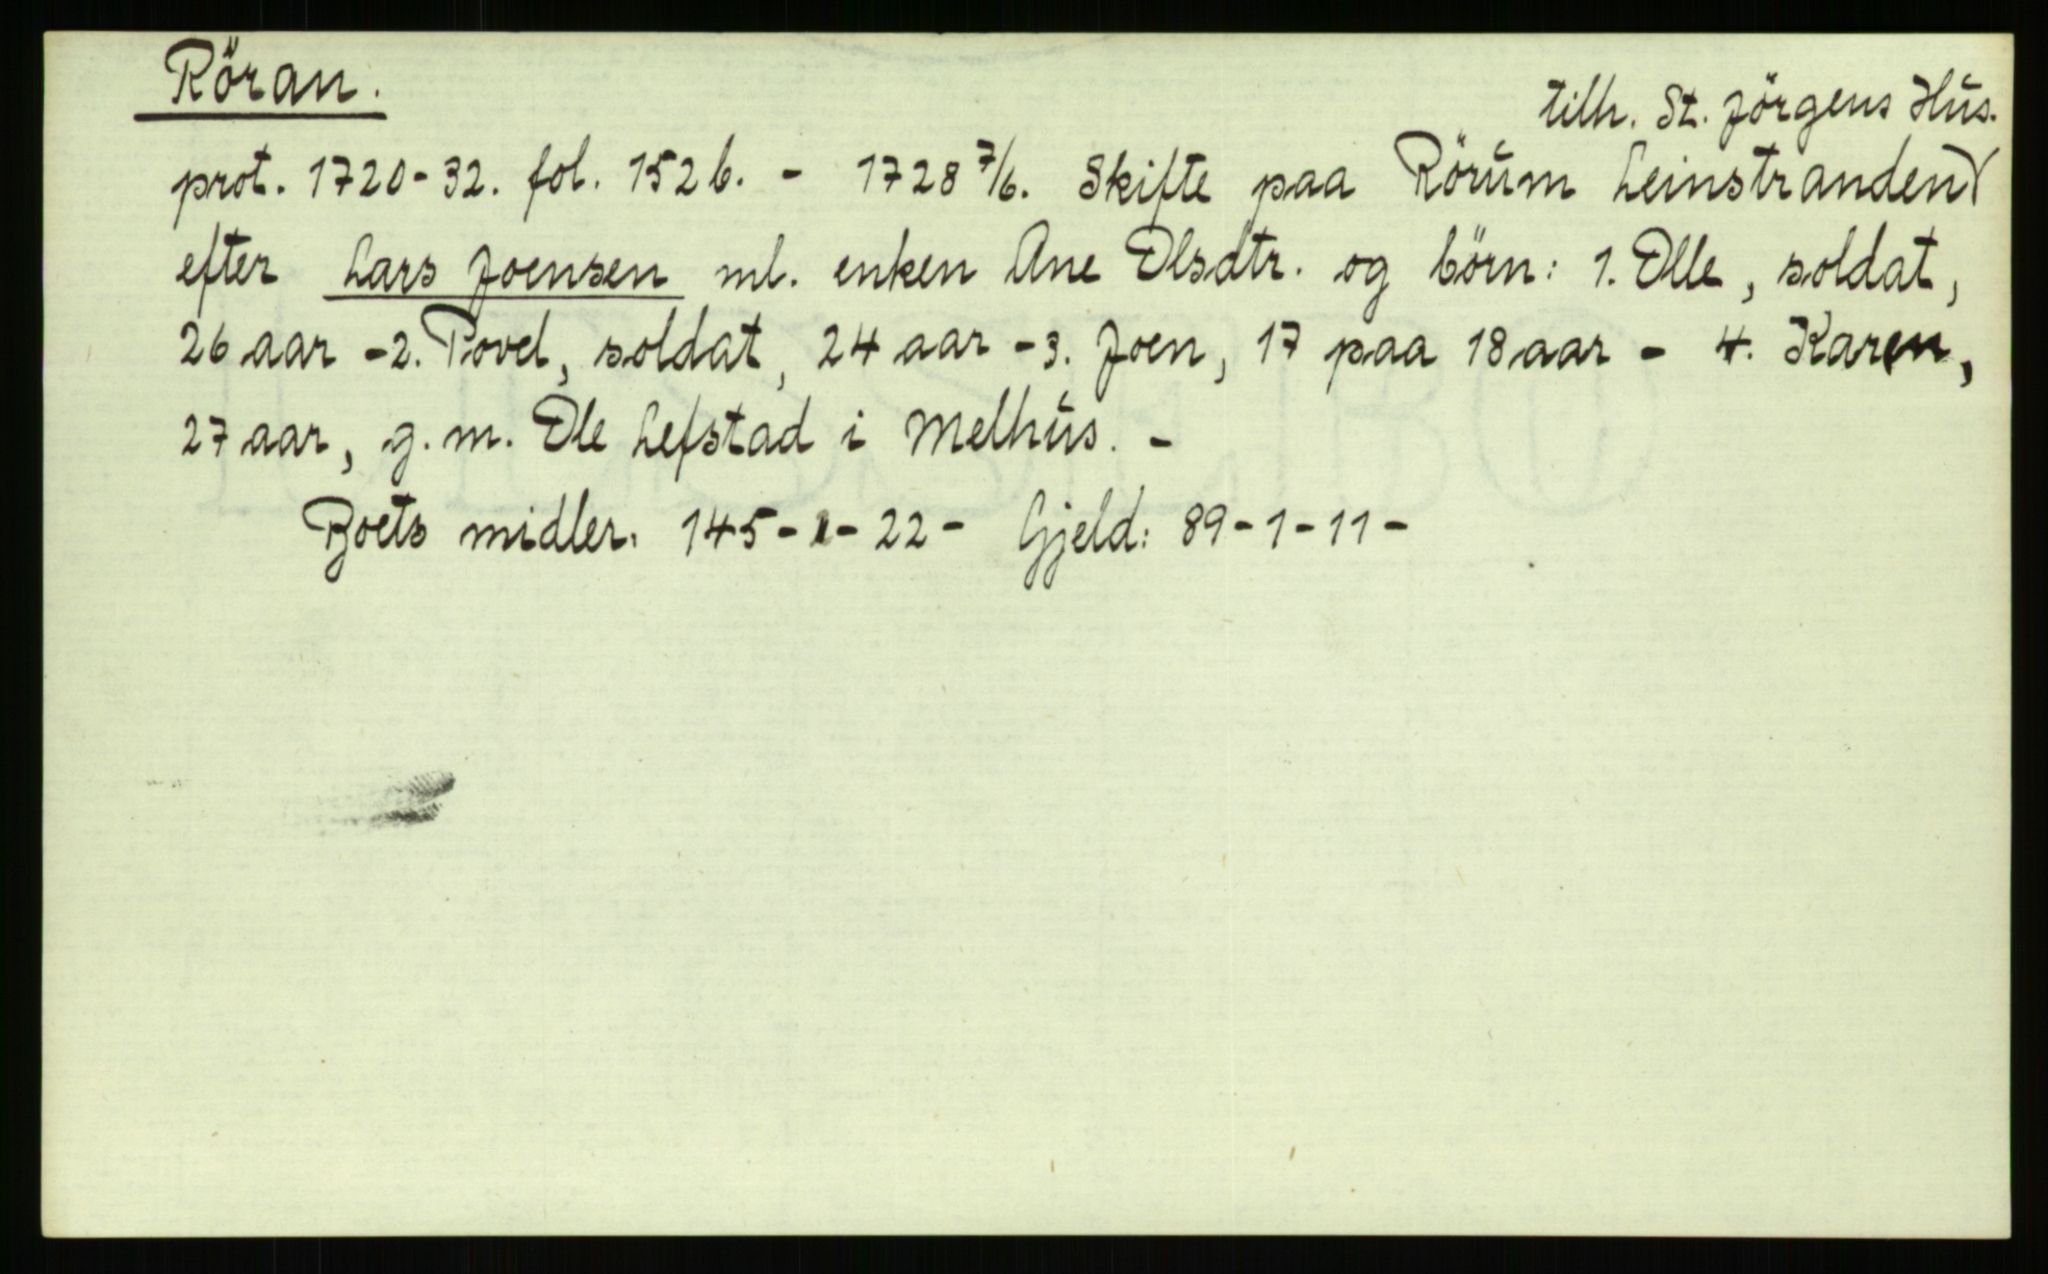 Röran.
tilh. St. Jörgens Hus.
prot. 1720-32. fol. 152 b. - 1728 7/6. Skifte paa Rörum Leinstranden
efter Lars Joensen ml. enken Ane Olsdtr. og börn: 1. Olle, soldat,
26 aar - 2. Povel, soldat, 24 aar - 3. Joen, 17 paa 18 aar - 4. Karen,
27 aar, g. m. Ole Lefstad i Melhus. -
Boets midler. 145-1-22- Gjeld: 89-1-11-